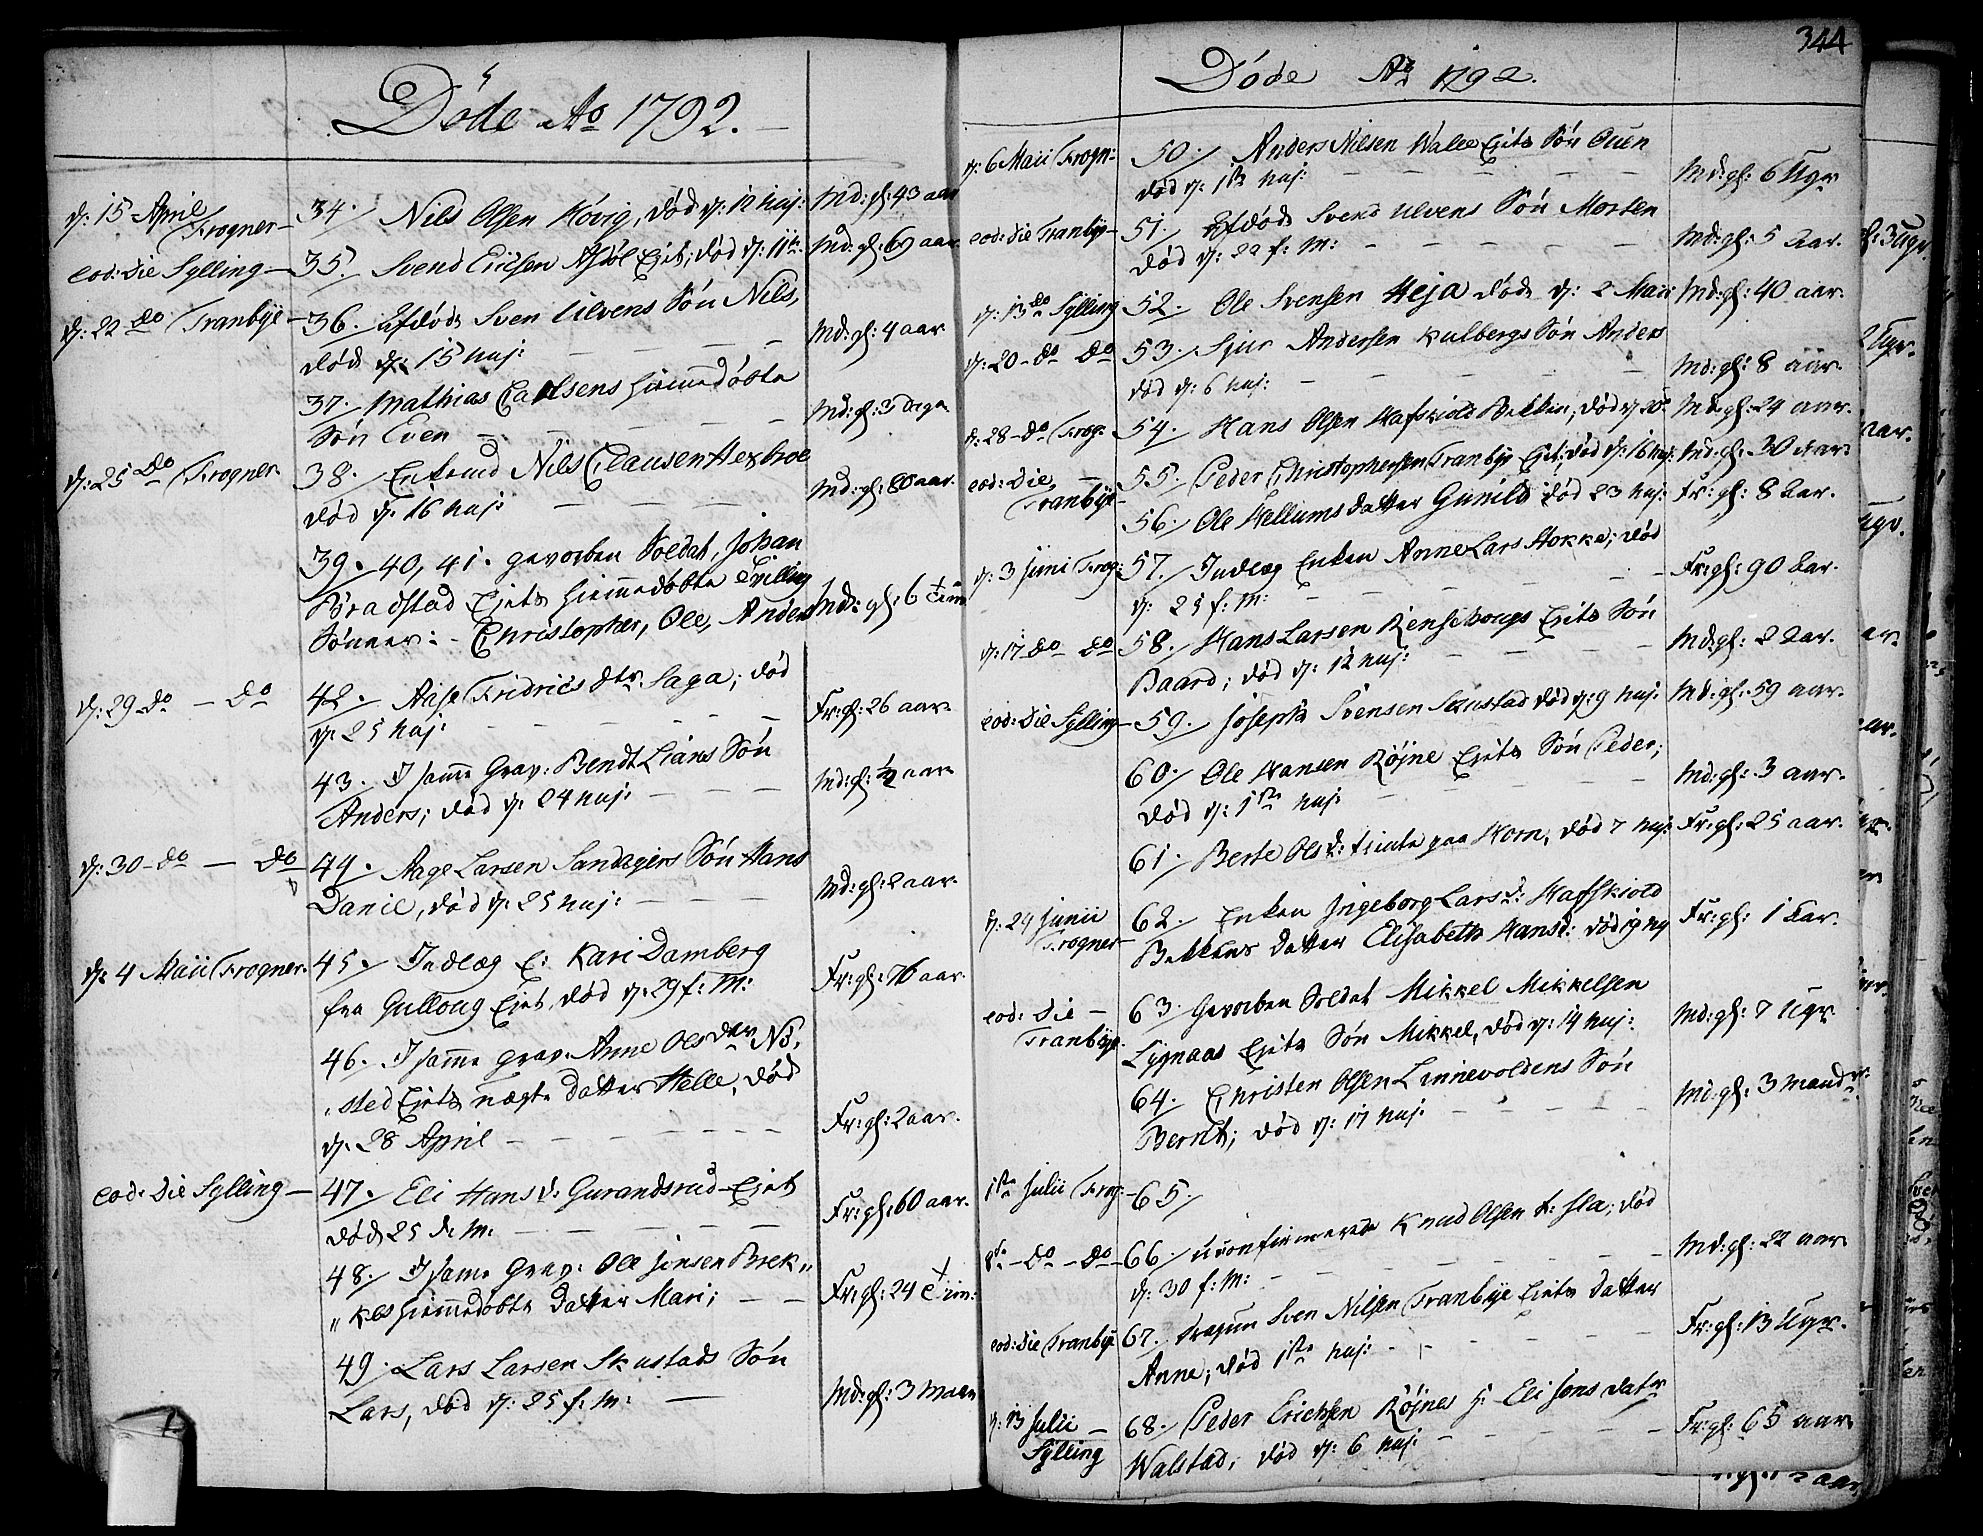 Døde Ao 1792.
d: 15 April Frogner —
34. Nils Olsen Kövig, død d: 12 huj:
Md: gl: 43 aar
eod: die Sylling —
35. Svend Ericsen Eiet, død d: 11te
Md: gl: 69 aar
d: 22 do Tranbye —
36. Afdøde Sven Ulvens Søn Nils,
død d: 15 huj:
Md: gl: 4 aar
37. Mathias Carlsens hjemmedøbte
Søn Even
Md: gl: 3 dage
d: 25 do Frogner.
38. Enkemd Nils Clausen
død d: 16 huj:
Md: gl: 80 aar.
39. 40, 41. gevorben Soldat, Johan
Bradstad Eiets hjemmedøbte Trilling
Sønner: - Christopher, Ole, Anders
Md: gl: 6 Tim
d: 29 do — do
42. Aase Fridrics dtr. Saga; død
d: 25 huj:
Fr: gl: 26 aar.
43. I samme Grav: Bendt Lians Søn
Anders; død d: 24 huj:
Md: gl: 1/2 aar
d: 30 - do — do
44. Aage Larsen Sandagers Søn Hans
Daniel, død d: 25 huj:
Md: gl: 2 aar.
d: 4 Maii Frogner.
45. Indlæg E: Kari Damberg
fra Gulloug Eiet, død d: 29 f: M:
Fr: gl: 76 aar.
46. I samme grav. Anne Ols dtr
sted Eiets ægte datter Helle, død
d: 28 April
Fr: gl: 2 aar.
eod: die Sylling —
47. Eli Hans d: Gurandsrud Eiet
død 25 d: M:
Fr: gl: 60 aar.
48. I samme Grav: Ole Jensen Brek„
„kes hjemmedøbte datter Mari;
Fr: gl: 24 Tim:
49. Lars Larsen Skustads Søn
Lars, død d: 25 f: M:
Md: gl: 3 Maan
344
Døde Ao 1792.
d: 6 Maii Frogn:
50. Anders Nilsen Walle Eiets Søn Ouen
død d: 1ste huj:
Md: gl: 6 Ugr
eod: die Tranby —
51. Afdøde Svend Ulvens Søn Morten
død d: 22 f: M:
Md: gl: 5 Aar.
d: 13 do Sylling
52. Ole Svensen Heja døde d: 2 Maii
Md: gl: 40 aar.
d: 20 - do do
53. Sjur Andersen Kulbergs Søn Anders
død d: 6 huj:
Md: gl: 8 aar.
d: 28 - do Frog:
54. Hans Olsen Hafskiold Bekken; død d 20
Md: gl: 24 aar.
eod: die —
Tranbye —
55. Peder Christophersen Tranbye Eiet; død d: 16 huj:
Md: gl: 30 Aar.
56. Ole Hellums datter Gunild død 23 huj:
Fr: gl: 8 Aar.
d: 3 Juni Frog:
57. Indlæg Enken Anne Lars Hokke; død
d: 25 f: M:
Fr: gl: 90 Aar.
d: 17 do do
58. Hans Larsen Eiets Søn
Baard; død d: 12 huj:
Md: gl: 2 Aar.
eod: die Sylling —
59. Joseph Svensen Skustad død d: 9 huj:
Md: gl: 59 aar.
60. Ole Hansen Røjne Eiets Søn Peder;
død d: 1ste huj:
Md: gl: 3 aar.
61. Berte Ols d: tiente paa Horn, død 7 huj:
Fr: gl: 25 aar.
d: 24 Junii
Frogner —
62. Enken Ingeborg Lars d: Haffskiold
Bekkens datter Elisabeth Hansd:
Fr: gl: 1 Aar.
eod: die —
Tranbye.
63. Gevorben Soldat Mikkel Mikkelsen
Lygnaas Eiets Søn Mikkel, død d: 14 huj:
Md: gl: 7 Ugr
64. Christen Olsen Linnevoldens Søn
Bernt; død d: 17 huj:
Md: gl: 3 maand
1ste Julii Frog:
65.
8de - do - do —
66. uconfirmerede Knud Olsen død
d: 30 f: M:
Md: gl: 22 aar
eod: die Tranbye
67. Dragun Sven Nilsen Tranbye Eiets datter
Anne; død 1ste huj:
Fr: gl: 13 Ugr.
d: 13 Julii —
Sylling
68. Peder Erichsen Røjnes H: Eli Jens dater
Walstad; død d: 6 huj:
Fr: gl: 65 aar